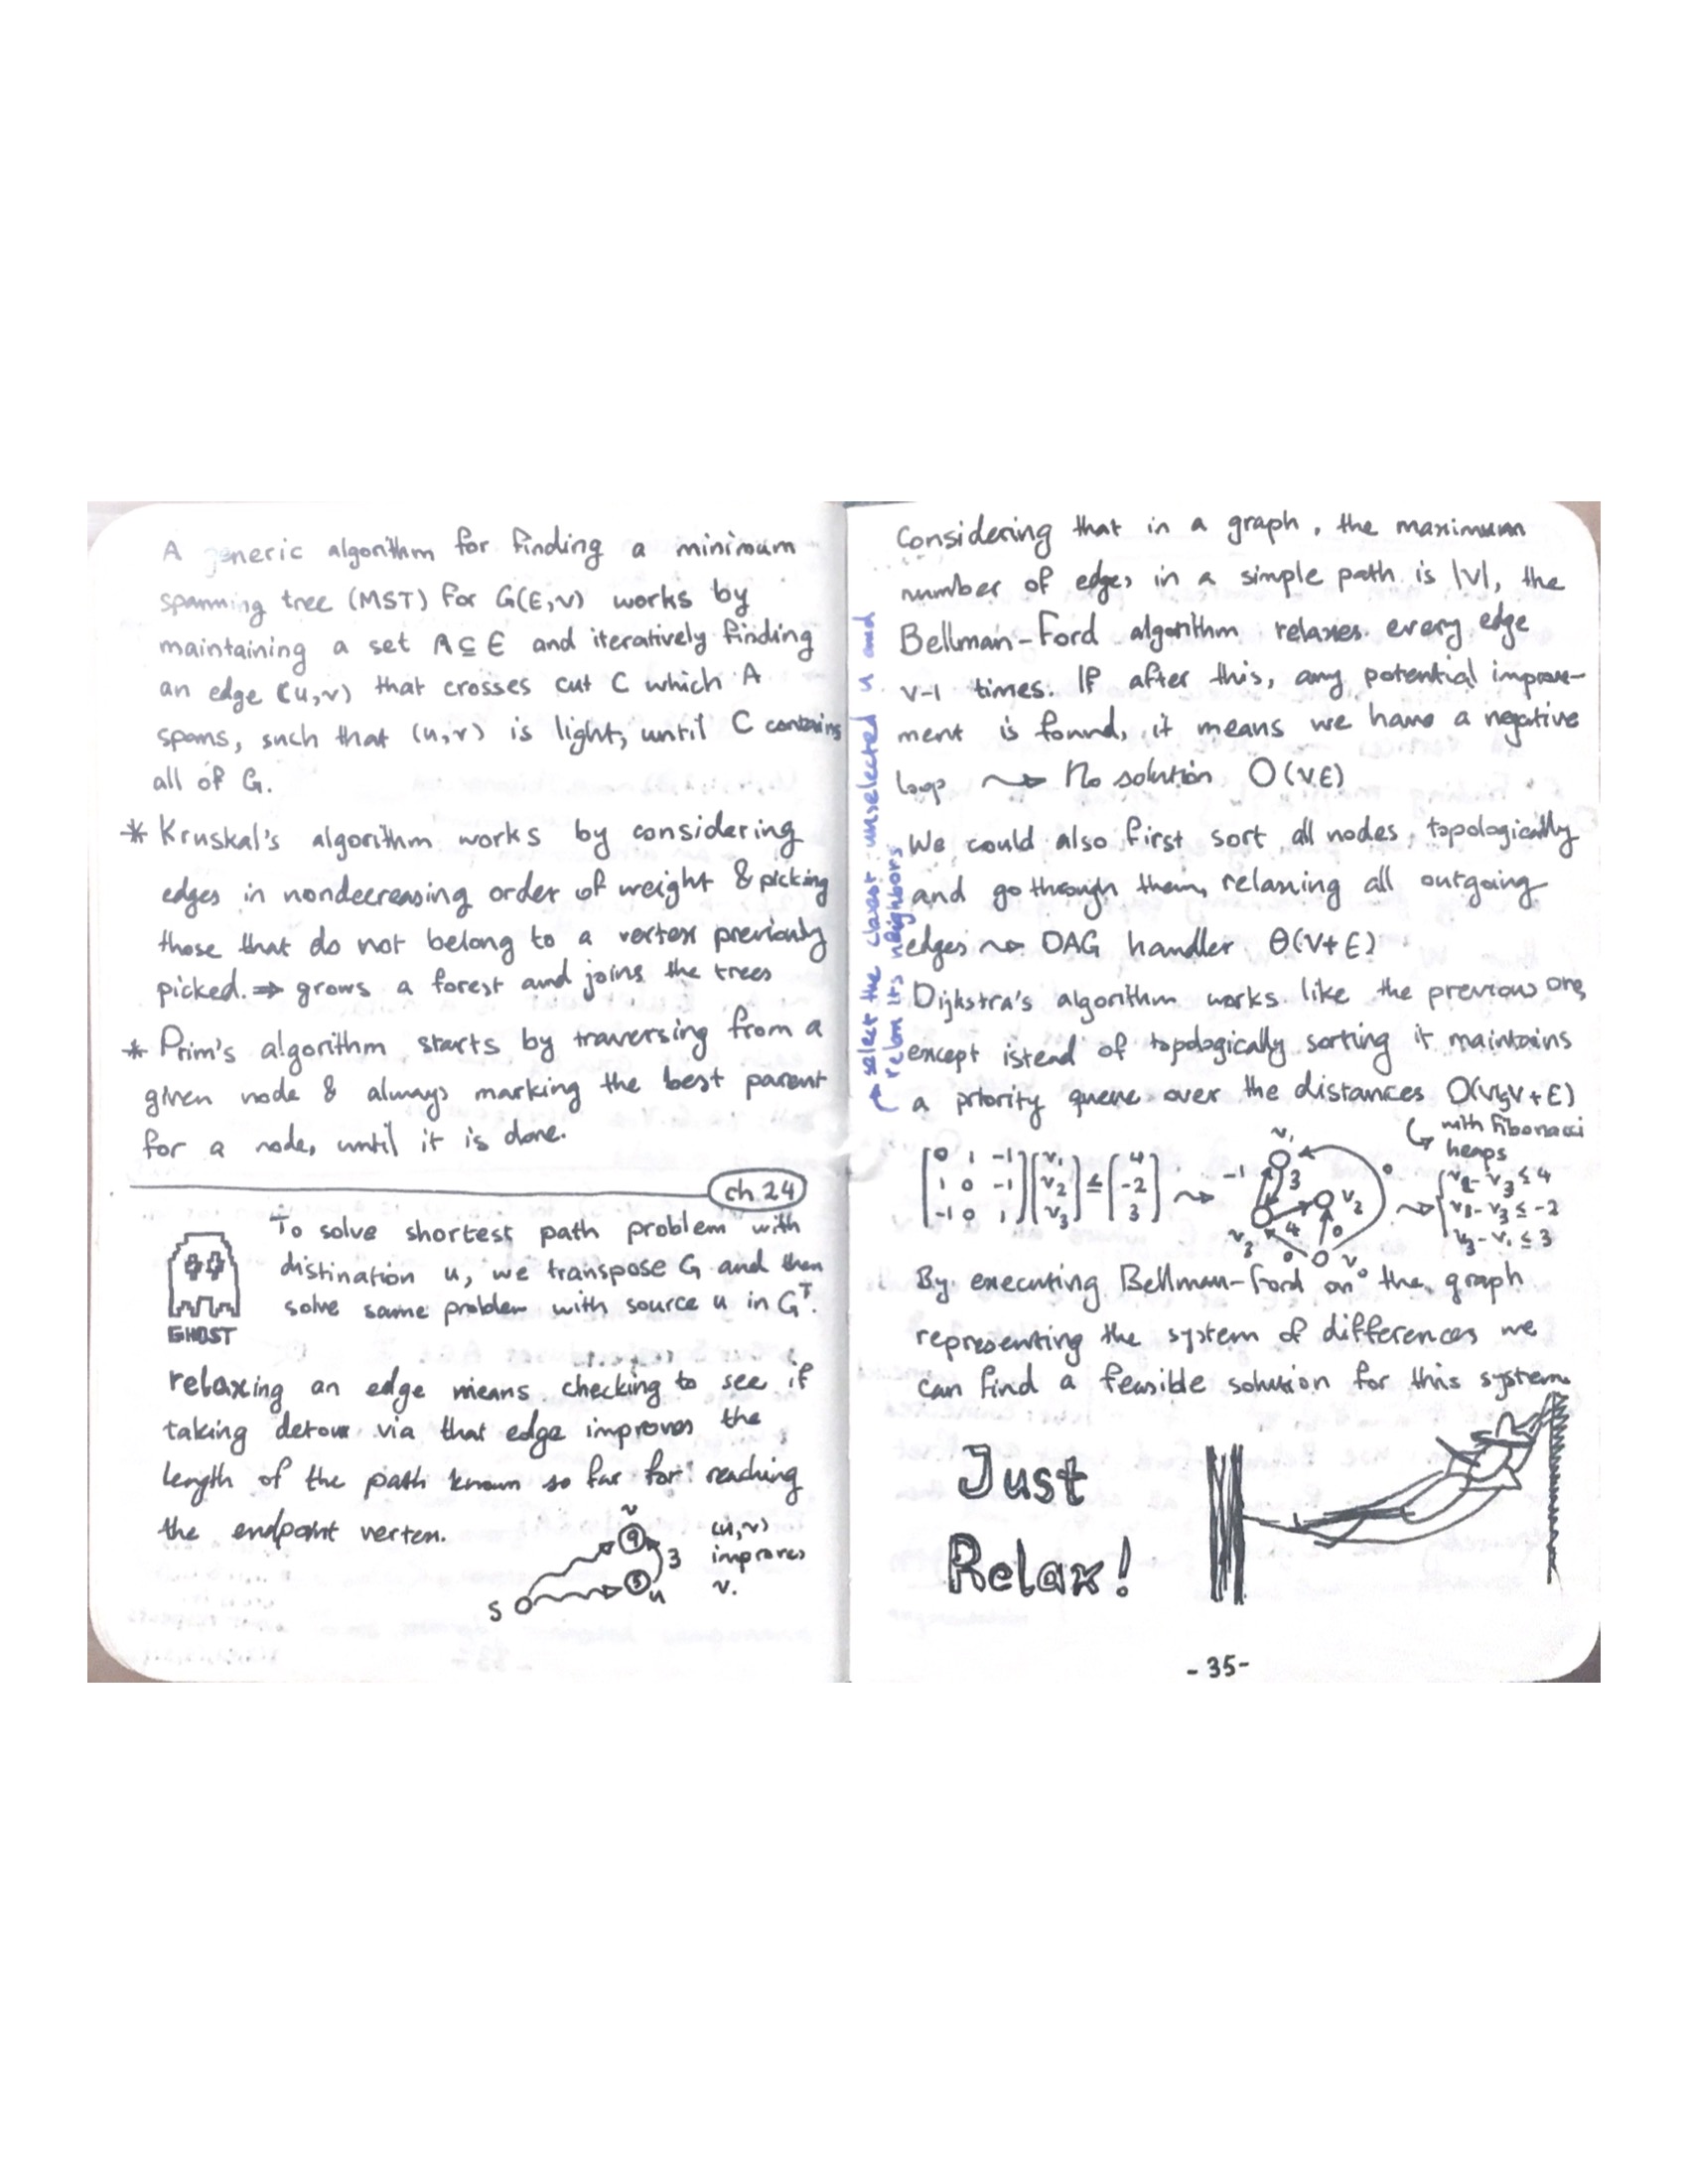 A generic algorithm for finding a minimum
spanning tree (MST) for G(E,V) works by
maintaining a set A⊆E and iteratively finding
an edge (u,v) that crosses cut C which A
spans, such that (u,v) is light, until C contains
all of G.
* Kruskal's algorithm works by considering
edges in nondecreasing order of weight & picking
those that do not belong to a vertex previously
picked. ⇒ grows a forest and joins the trees
* Prim's algorithm starts by traversing from a
given node & always marking the best parent
for a node, until it is done.
ch.24
To solve shortest path problem with
distination u, we transpose G and then
solve same problem with source u in Gᵀ.
GHOST
relaxing an edge means checking to see if
taking detour via that edge improves the
length of the path known so far for reaching
the endpoint vertex.
v
9
3
5
u
S
(u,v)
improves
v.
select the closest unselected u and
relax its neighbors
Considering that in a graph, the maximum
number of edges in a simple path is |V|, the
Bellman-Ford algorithm relaxes every edge
V-1 times. If after this, any potential improve-
ment is found, it means we have a negative
loop ⇝ No solution O(VE)
We could also first sort all nodes topologically
and go through them, relaxing all outgoing
edges ⇝ DAG handler Θ(V+E)
Dijkstra's algorithm works like the previous one,
except istead of topologically sorting it maintains
a priority queue over the distances O(VlgV+E)
with Fibonacci
heaps
[0 1 -1] [v₁] ≤ [4]
[1 0 -1] [v₂] [-2]
[-1 0 1] [v₃] [3]
v₁
-1
3
0
v₂
4
0
v₃
0
v₀
v₂-v₃≤4
v₁-v₃≤-2
v₃-v₁≤3
By executing Bellman-Ford on the graph
representing the system of differences we
can find a feasible solution for this system.
Just
Relax!
-35-